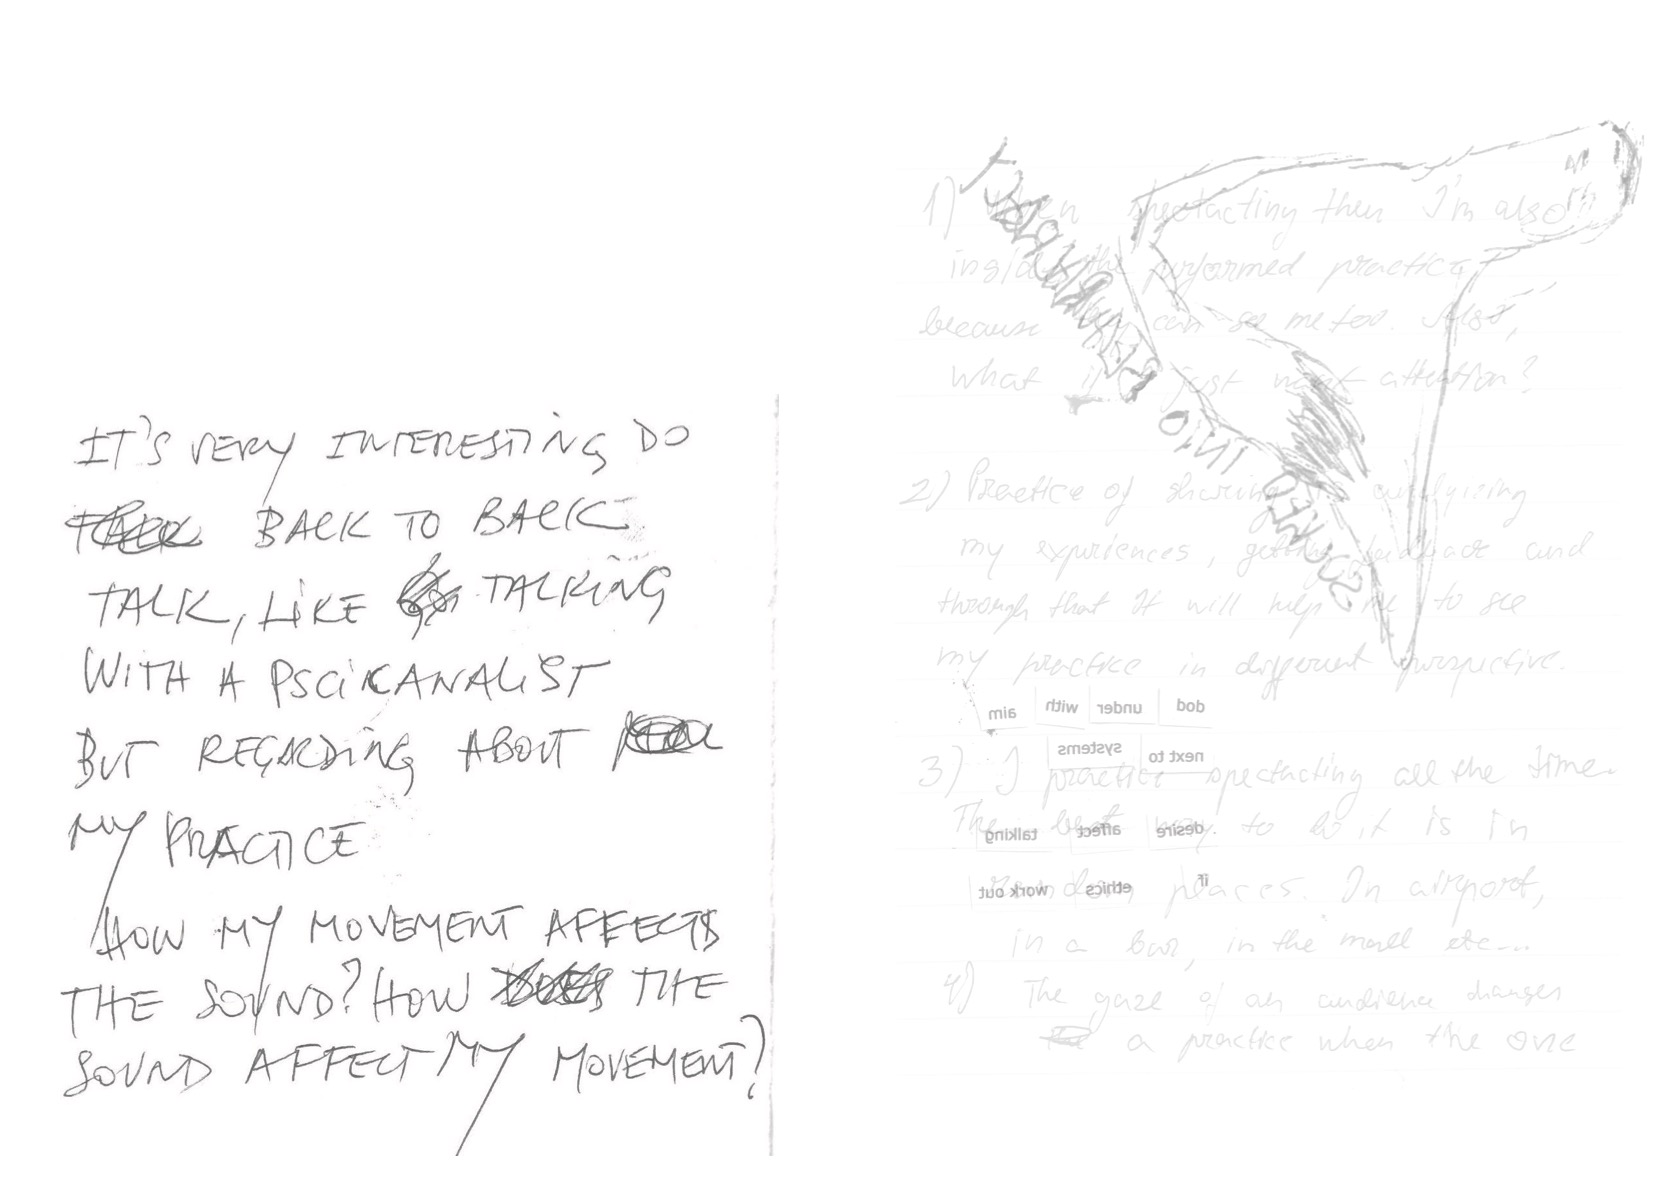 IT'S VERY INTERESTING DO
BACK TO BACK
TALK, LIKE TALKING
WITH A PSCIKANALIST
BUT REGARDING ABOUT
MY PRACTICE
HOW MY MOVEMENT AFFECTS
THE SOUND? HOW THE
SOUND AFFECT MY MOVEMENT?
1) When spectacting then I'm also
inside the performed practice,
because they can see me too. Also,
what if I just want attention?
2) Practice of sharing analyizing
my expiriences, getting feedback and
through that it will help me to see
my practice in different perspective.
aim with under dod
systems next to
3) I practice spectacting all the time.
The best way to do it is in
talking affect desire
places. In airport,
work out ethics if
in a bar, in the mall etc...
4) The gaze of an audience changes
a practice when the one
INTO